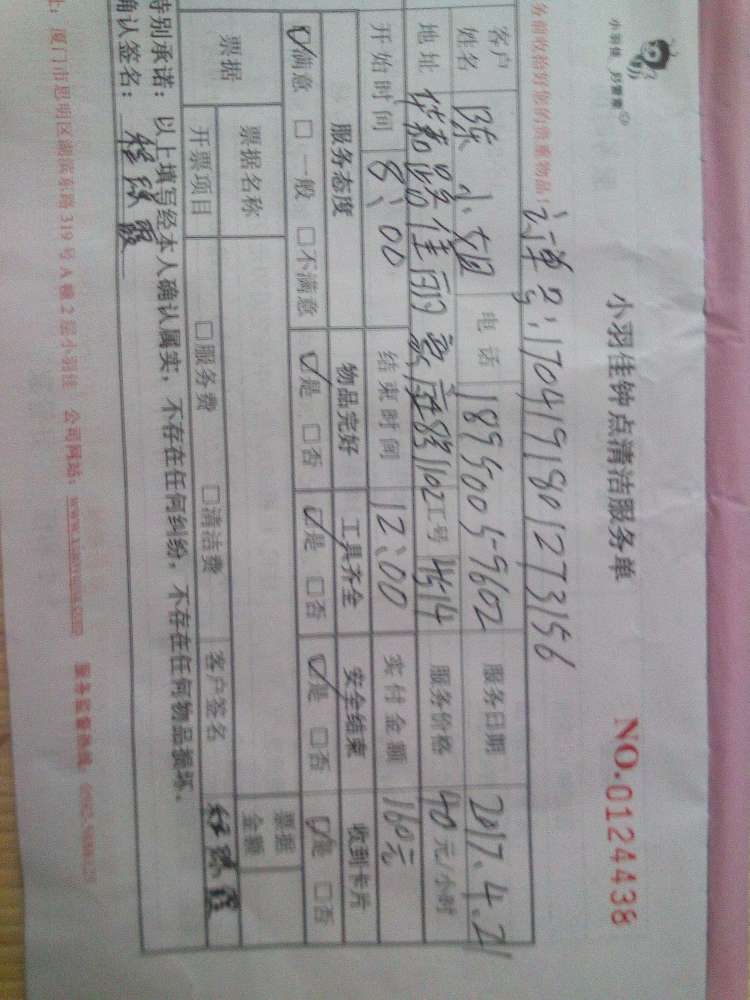 小羽佳 好管家
小羽佳钟点清洁服务单
NO.0124438
务前收拾好您的贵重物品！
订单号:1704191801273156
客户姓名 陈小姐 电话 18950059602 服务日期 2017.4.21
地址 佳丽 1102 工号 4514 服务价格 40元/小时
开始时间 8:00 结束时间 12:00 实付金额 160元
服务态度 物品完好 工具齐全 安全结束 收到卡片
☑满意 □一般 □不满意 ☑是 □否 ☑是 □否 ☑是 □否 ☑是 □否
票据 票据名称 票据金额
开票项目 □服务费 □清洁费 客户签名
特别承诺：以上填写经本人确认属实，不存在任何纠纷，不存在任何物品损坏。
确认签名：
址：厦门市思明区湖滨东路319号A幢2层小羽佳 公司网站： 服务监督热线：